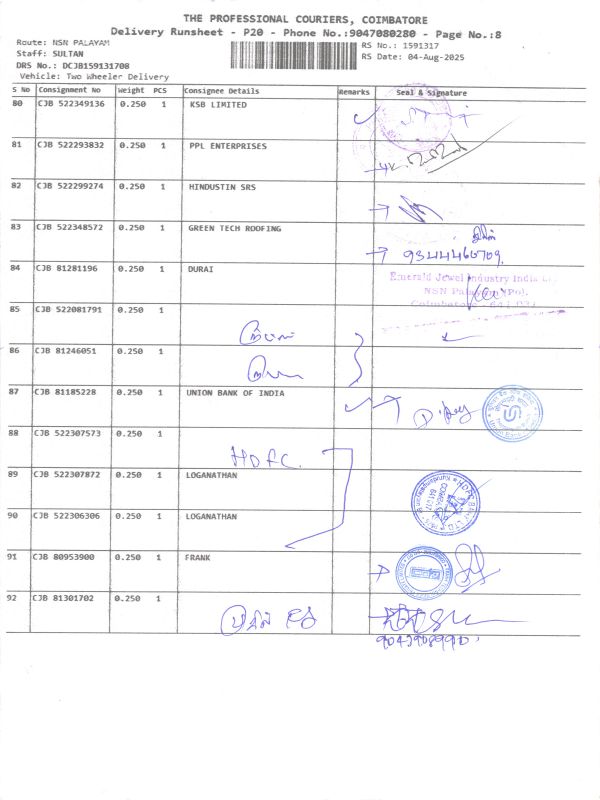 THE PROFESSIONAL COURIERS, COIMBATORE
Delivery Runsheet - P20 - Phone No.:9047080280 - Page No.:8
Route: NSN PALAYAM
RS No.: 1591317
Staff: SULTAN
RS Date: 04-Aug-2025
DRS No.: DCJB159131708
Vehicle: Two Wheeler Delivery
S No Consignment No Weight PCS Consignee Details Remarks Seal & Signature
80 CJB 522349136 0.250 1 KSB LIMITED
81 CJB 522293832 0.250 1 PPL ENTERPRISES
82 CJB 522299274 0.250 1 HINDUSTIN SRS
83 CJB 522348572 0.250 1 GREEN TECH ROOFING
9344460709
84 CJB 81281196 0.250 1 DURAI
Emerald Jewel Industry India
NSN Palayam (Po).
Coimbatore
85 CJB 522081791 0.250 1
86 CJB 81246051 0.250 1
87 CJB 81185228 0.250 1 UNION BANK OF INDIA
88 CJB 522307573 0.250 1
HDFC
89 CJB 522307872 0.250 1 LOGANATHAN
90 CJB 522306306 0.250 1 LOGANATHAN
91 CJB 80953900 0.250 1 FRANK
92 CJB 81301702 0.250 1